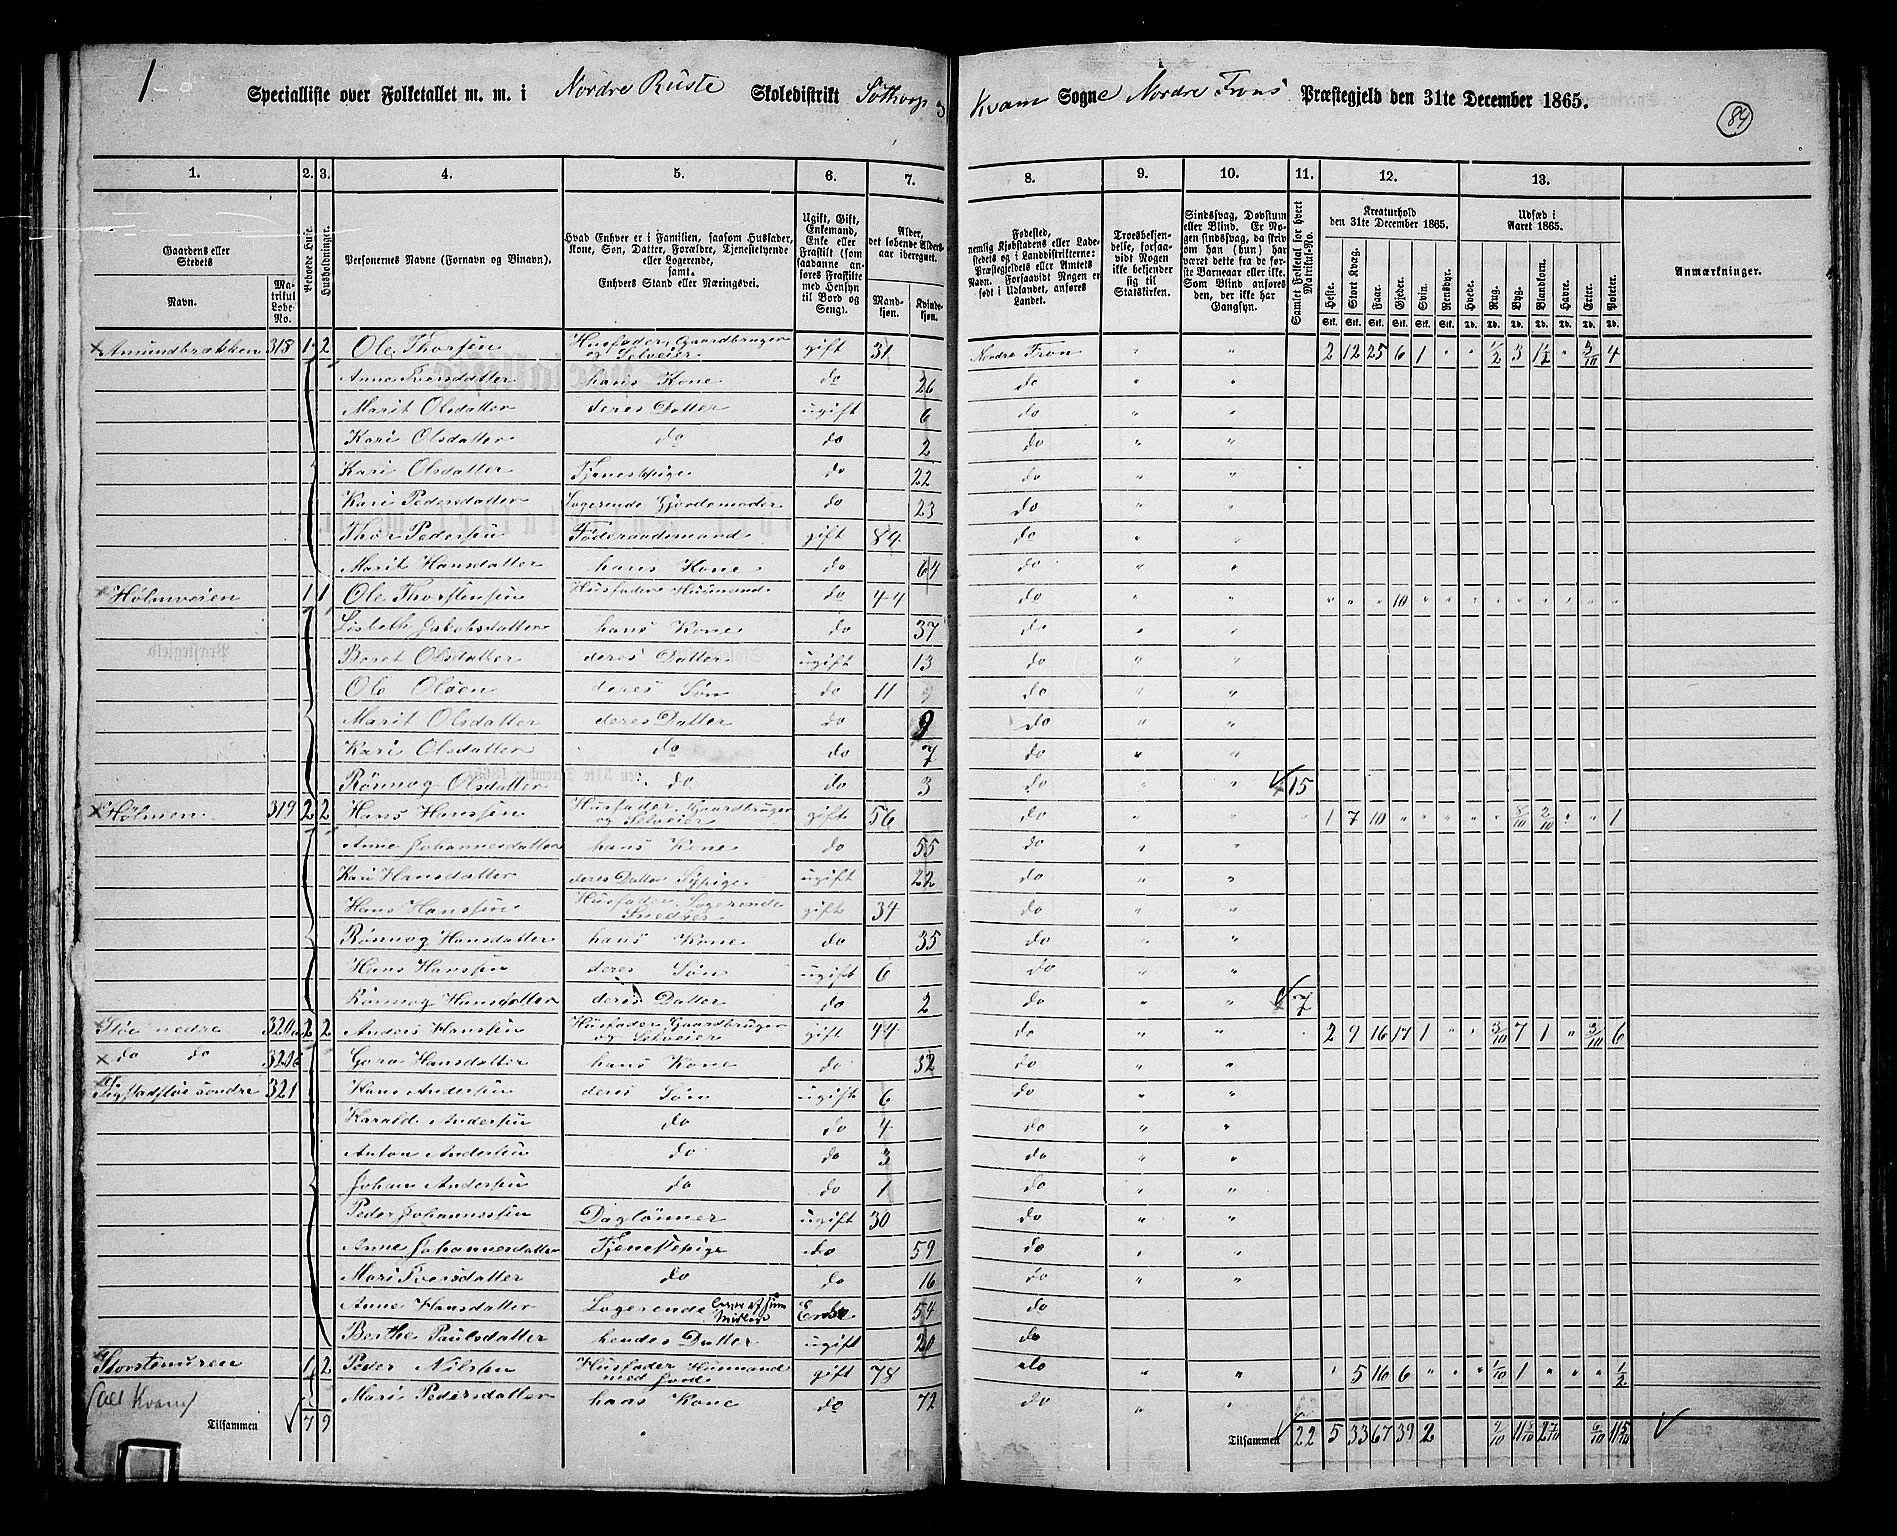 1
Specialliste over Folketallet m. m. i Nordre Ruste Skoledistrikt
Kvam Sogne Nordre Frons Præstegjeld den 31te December 1865.
84
1. 2. 3. 4. 5. 6. 7. 8. 9. 10. 11. 12. 13.
Gaardens eller Stedets
Navn.
Matrikul Løbe-No.
Beboede Huse.
Husholdninger.
Personernes Navne (Fornavn og Binavn).
Hvad Enhver er i Familien, saasom Husfader, Kone, Søn, Datter, Forældre, Tjenestetyende eller Logerende, samt Enhvers Stand eller Næringsvei.
Ugift, Gift, Enkemand, Enke eller Fraskilt (som saadanne anføres med Fraskilte med Hensyn til Bord og Seng).
Alder, det løbende Aldersaar iberegnet.
Mandkjøn.
Kvindekjøn.
Fødested, nemlig Kjøbstadens eller Ladestedets og i Landdistrikterne: Præstegjeldets eller Amtets Navn. Forsaavidt Nogen er født i Udlandet, anføres Landet.
Troesbekjendelse, forsaavidt Nogen ikke bekjender sig til Statskirken.
Sindssvag, Døvstum eller Blind. Er Nogen sindssvag, da skriv om han (hun) har været dette fra de første Barneaar eller ikke. Som Blind anføres den, der ikke har Gangsyn.
Samlet Folketal for hvert Matrikul-No.
Kreaturhold den 31te December 1865.
Heste. Stort Kvæg. Faar. Gjeder. Svin. Rensdyr.
Udsæd i Aaret 1865.
Hvede. Rug. Byg. Blandkorn. Havre. Erter. Poteter.
Anmærkninger.
Amundbrækken 318 1 2 Ole Thorsen Husfader, Gaardbruger og Selveier gift 31 Nordre Fron " " 2 12 25 6 1 " " 1/2 3 1 1/2 " 3/10 4
Anne Iversdatter hans Kone do 26 do " "
Marit Olsdatter deres Datter ugift 6 do " "
Kari Olsdatter do do 2 do " "
Kari Olsdatter Tjenestepige do 22 do " "
Kari Pedersdatter Logerende Gjordemoder do 23 do " "
Thor Pedersen Føderaadsmand gift 84 do " "
Marit Hansdatter hans Kone do 64 do " "
Holmveien 1 1 Ole Thorstensen Husfader Husmand do 44 do " " " " " 10 " " " " " " " " "
Lisbeth Jakobsdatter hans Kone do 37 do " "
Beret Olsdatter deres Datter ugift 13 do " "
Ole Olsen deres Søn do 11 do " "
Marit Olsdatter deres Datter do 9 do " "
Kari Olsdatter do do 7 do " "
Rønnog Olsdatter do do 3 do " " 15
Holmen 319 2 2 Hans Hanssen Husfader, Gaardbruger og Selveier gift 56 do " " 1 7 10 " " " " " 8/10 2/10 " " 1
Anne Johannesdatter hans Kone do 55 do " "
Kari Hansdatter deres Datter Sypige ugift 22 do " "
Hans Hanssen Husfader, Logerende Snedker gift 34 do " "
Rønnog Hansdatter hans Kone do 35 do " "
Hans Hanssen deres Søn ugift 6 do " "
Rønnog Hansdatter deres Datter do 2 do " " 7
nedre 320a 2 2 Anders Hanssen Husfader, Gaardbruger og Selveier gift 44 do " " 2 9 16 17 1 " " 3/10 7 1 " 3/10 6
do do 320b Goro Hansdatter hans Kone do 32 do " "
søndre 321 Hans Andersen deres Søn ugift 6 do " "
Harald Andersen do do 4 do " "
Anton Andersen do do 3 do " "
Johan Andersen do do 1 do " "
Peder Johannessen Daglønner ugift 30 do " "
Anne Johannesdatter Tjenestepige do 59 do " "
Mari Iversdatter do do 16 do " "
Anne Hansdatter Logerende Lever af sine Midler Enke 54 do
Berthe Paulsdatter hendes Datter ugift 20 do
Storstenuren 1 2 Peder Nilsen Husfader Husmand med Jord gift 78 do " " " 5 16 6 " " " 1/10 1 " " " 1/2
(Alt Kvam) Mari Pedersdatter hans Kone do 72 do " "
Tilsammen 7 9
Tilsammen 22 5 33 67 39 2